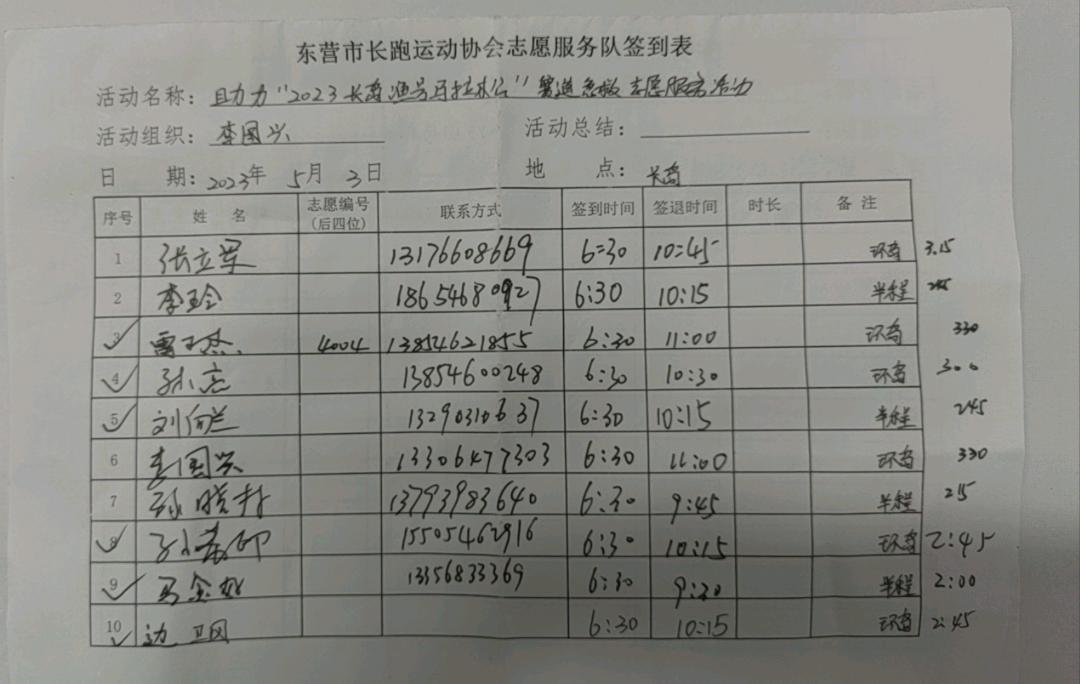 东营市长跑运动协会志愿服务队签到表
活动名称：助力“2023长岛渔号马拉松”赛道急救志愿服务活动
活动组织：李国兴 活动总结：
日 期：2023年 5月 3日 地 点：长岛
序号 姓 名 志愿编号（后四位） 联系方式 签到时间 签退时间 时长 备 注
1 张立军 13176608669 6:30 10:45 环岛 3.15
2 李玲 18654680927 6:30 10:15 半程 245
3 4004 13854621855 6:30 11:00 环岛 330
4 孙亮 13854600248 6:30 10:30 环岛 300
5 刘向兰 13290310637 6:30 10:15 半程 245
6 李国兴 13306477303 6:30 11:00 环岛 330
7 张晓村 13793983640 6:30 9:45 半程 215
8 15505462916 6:30 10:15 环岛 2:45
9 马金 13356833369 6:30 9:20 半程 2:00
10 边卫国 6:30 10:15 环岛 2:45